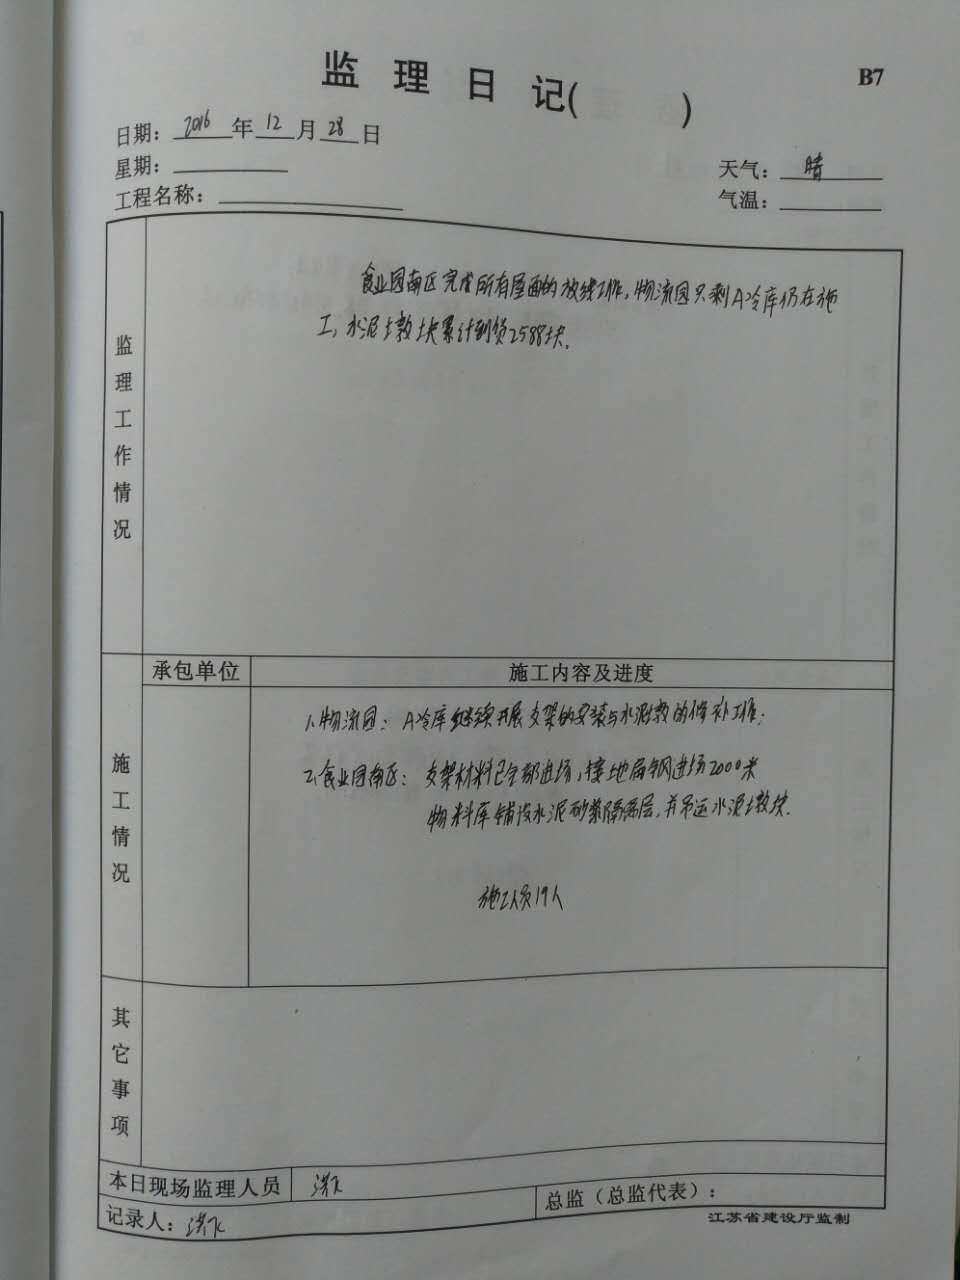 监理日记( )
B7
日期：2016年12月28日
星期：
天气：晴
工程名称：
气温：
监理工作情况
食业园南区完成所有屋面的放线工作，物流园只剩A冷库仍在施
工，水泥墩块累计到货2588块.
承包单位
施工内容及进度
施工情况
1.物流园：A冷库继续开展支架的安装与水泥墩的修补工作；
2.食业园南区：支架材料已全部进场，接地扁钢进场2000米
物料库铺设水泥砂浆隔离层，并吊运水泥墩块.
施工人员19人
其它事项
本日现场监理人员
总监（总监代表）：
记录人：
江苏省建设厅监制